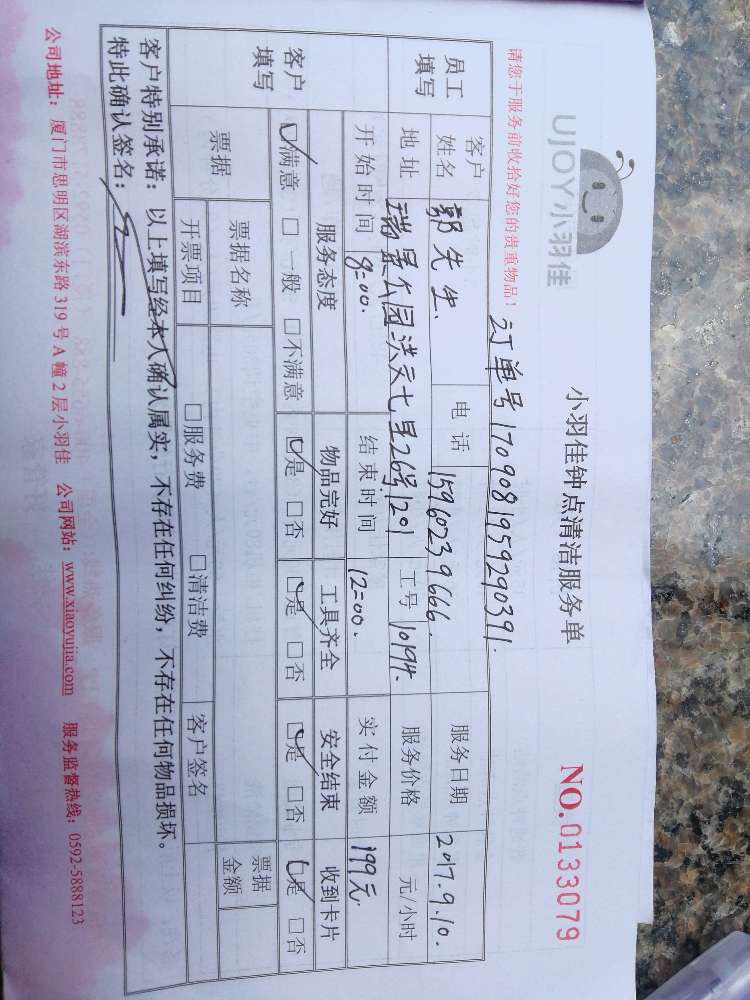 UJOY小羽佳
小羽佳钟点清洁服务单
NO.0133079
请您于服务前收拾好您的贵重物品！
订单号1709081959290391.
员工填写 客户姓名 郭先生、 电话 15960239666. 服务日期 2017.9.10.
地址 瑞景公园洪文七里26号1201 工号 10194. 服务价格 元/小时
开始时间 8=00. 结束时间 12=00. 实付金额 199元
客户填写 服务态度 物品完好 工具齐全 安全结束 收到卡片
☑满意 □一般 □不满意 ☑是 □否 ☑是 □否 ☑是 □否 ☑是 □否
票据 票据名称 票据金额
开票项目 □服务费 □清洁费 客户签名
客户特别承诺：以上填写经本人确认属实，不存在任何纠纷，不存在任何物品损坏。
特此确认签名：
公司地址：厦门市思明区湖滨东路319号A幢2层小羽佳 公司网站：www.xiaoyujia.com 服务监督热线：0592-5888123